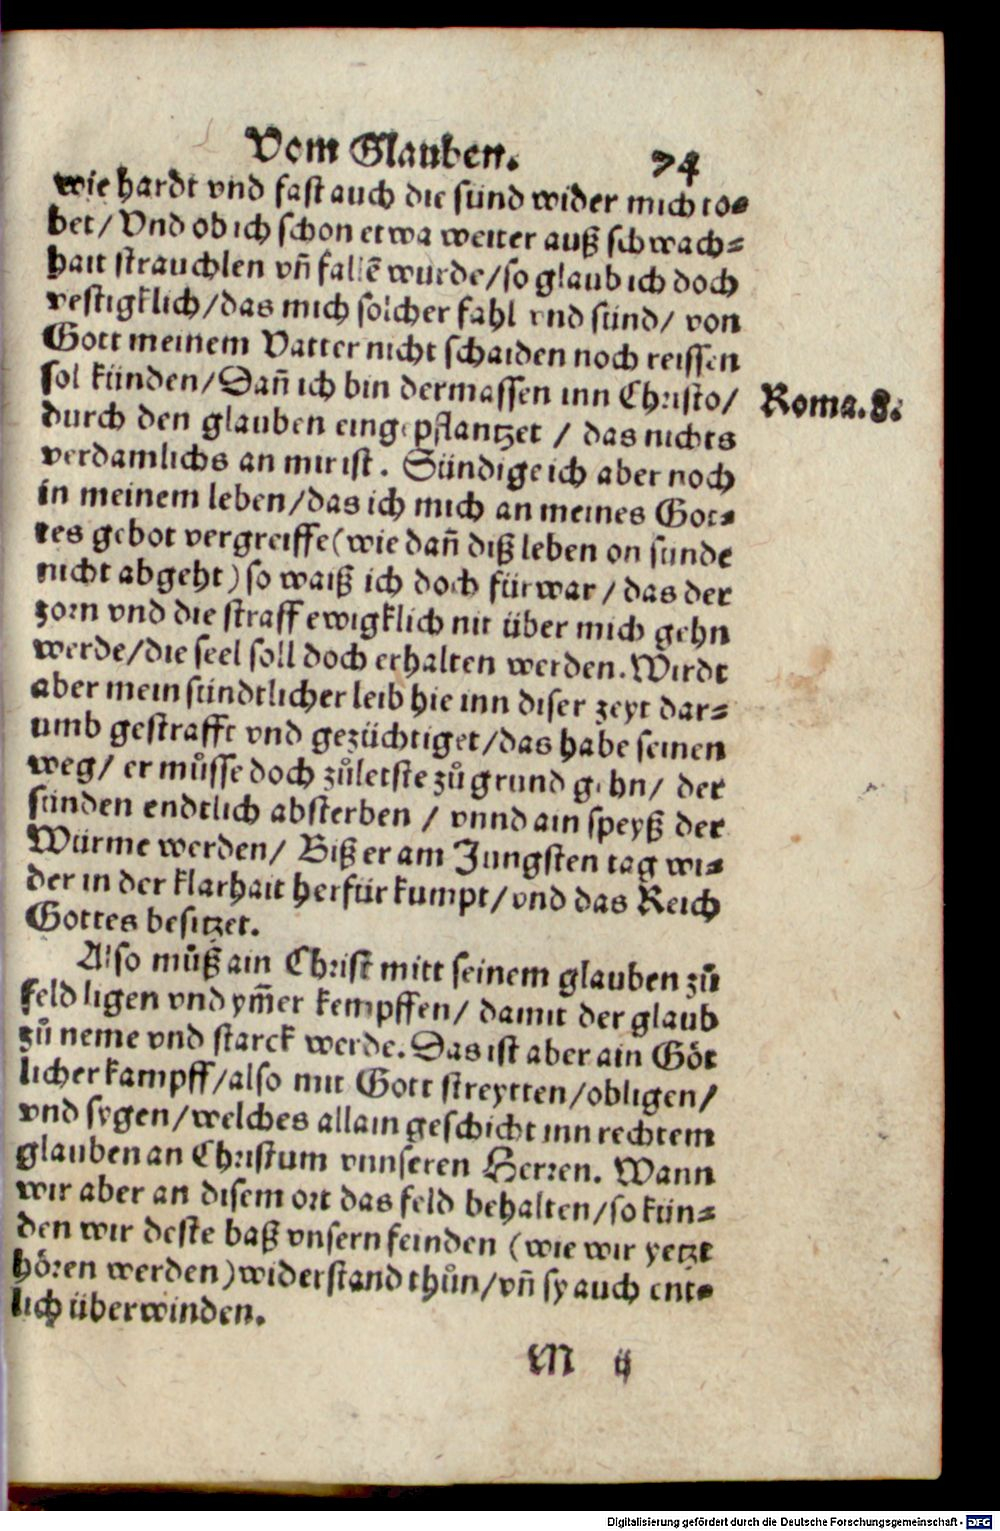 Vom Glauben. 74
wie hardt vnd fast auch die sünd wider mich to⸗
bet/ Vnd ob ich schon etwa weiter auß schwach⸗
hait strauchlen vñ fallẽ wurde/so glaub ich doch
vestigklich/das mich solcher fahl vnd sünd/ von
Gott meinem Vatter nicht schaiden noch reissen
sol künden/Dañ ich bin dermassen inn Christo/
Roma.8.
durch den glauben eingepflantzet / das nichts
verdamlichs an mir ist. Sündige ich aber noch
in meinem leben/das ich mich an meines Got⸗
tes gebot vergreiffe(wie dañ diß leben on sünde
nicht abgeht) so waiß ich doch fürwar / das der
zorn vnd die straff ewigklich nit über mich gehn
werde/die seel soll doch erhalten werden. Wirdt
aber mein sündtlicher leib hie inn diser zeyt dar⸗
umb gestrafft vnd gezüchtiget/das habe seinen
weg/ er můsse doch zůletste zů grund gehn/ der
sünden endtlich absterben / vnnd ain speyß der
Würme werden/ Biß er am Jungsten tag wi⸗
der in der klarhait herfür kumpt/vnd das Reich
Gottes besitzet.
Also můß ain Christ mitt seinem glauben zů
feld ligen vnd ym̃er kempffen/ damit der glaub
zů neme vnd starck werde. Das ist aber ain Göt
licher kampff/also mit Gott streytten/obligen/
vnd sygen/welches allain geschicht inn rechtem
glauben an Christum vnnseren Herren. Wann
wir aber an disem ort das feld behalten/so kün⸗
den wir deste baß vnsern feinden (wie wir yetzt
hören werden)widerstand thůn/vñ sy auch ent⸗
lich überwinden.
M ij
Digitalisierung gefördert durch die Deutsche Forschungsgemeinschaft - DFG